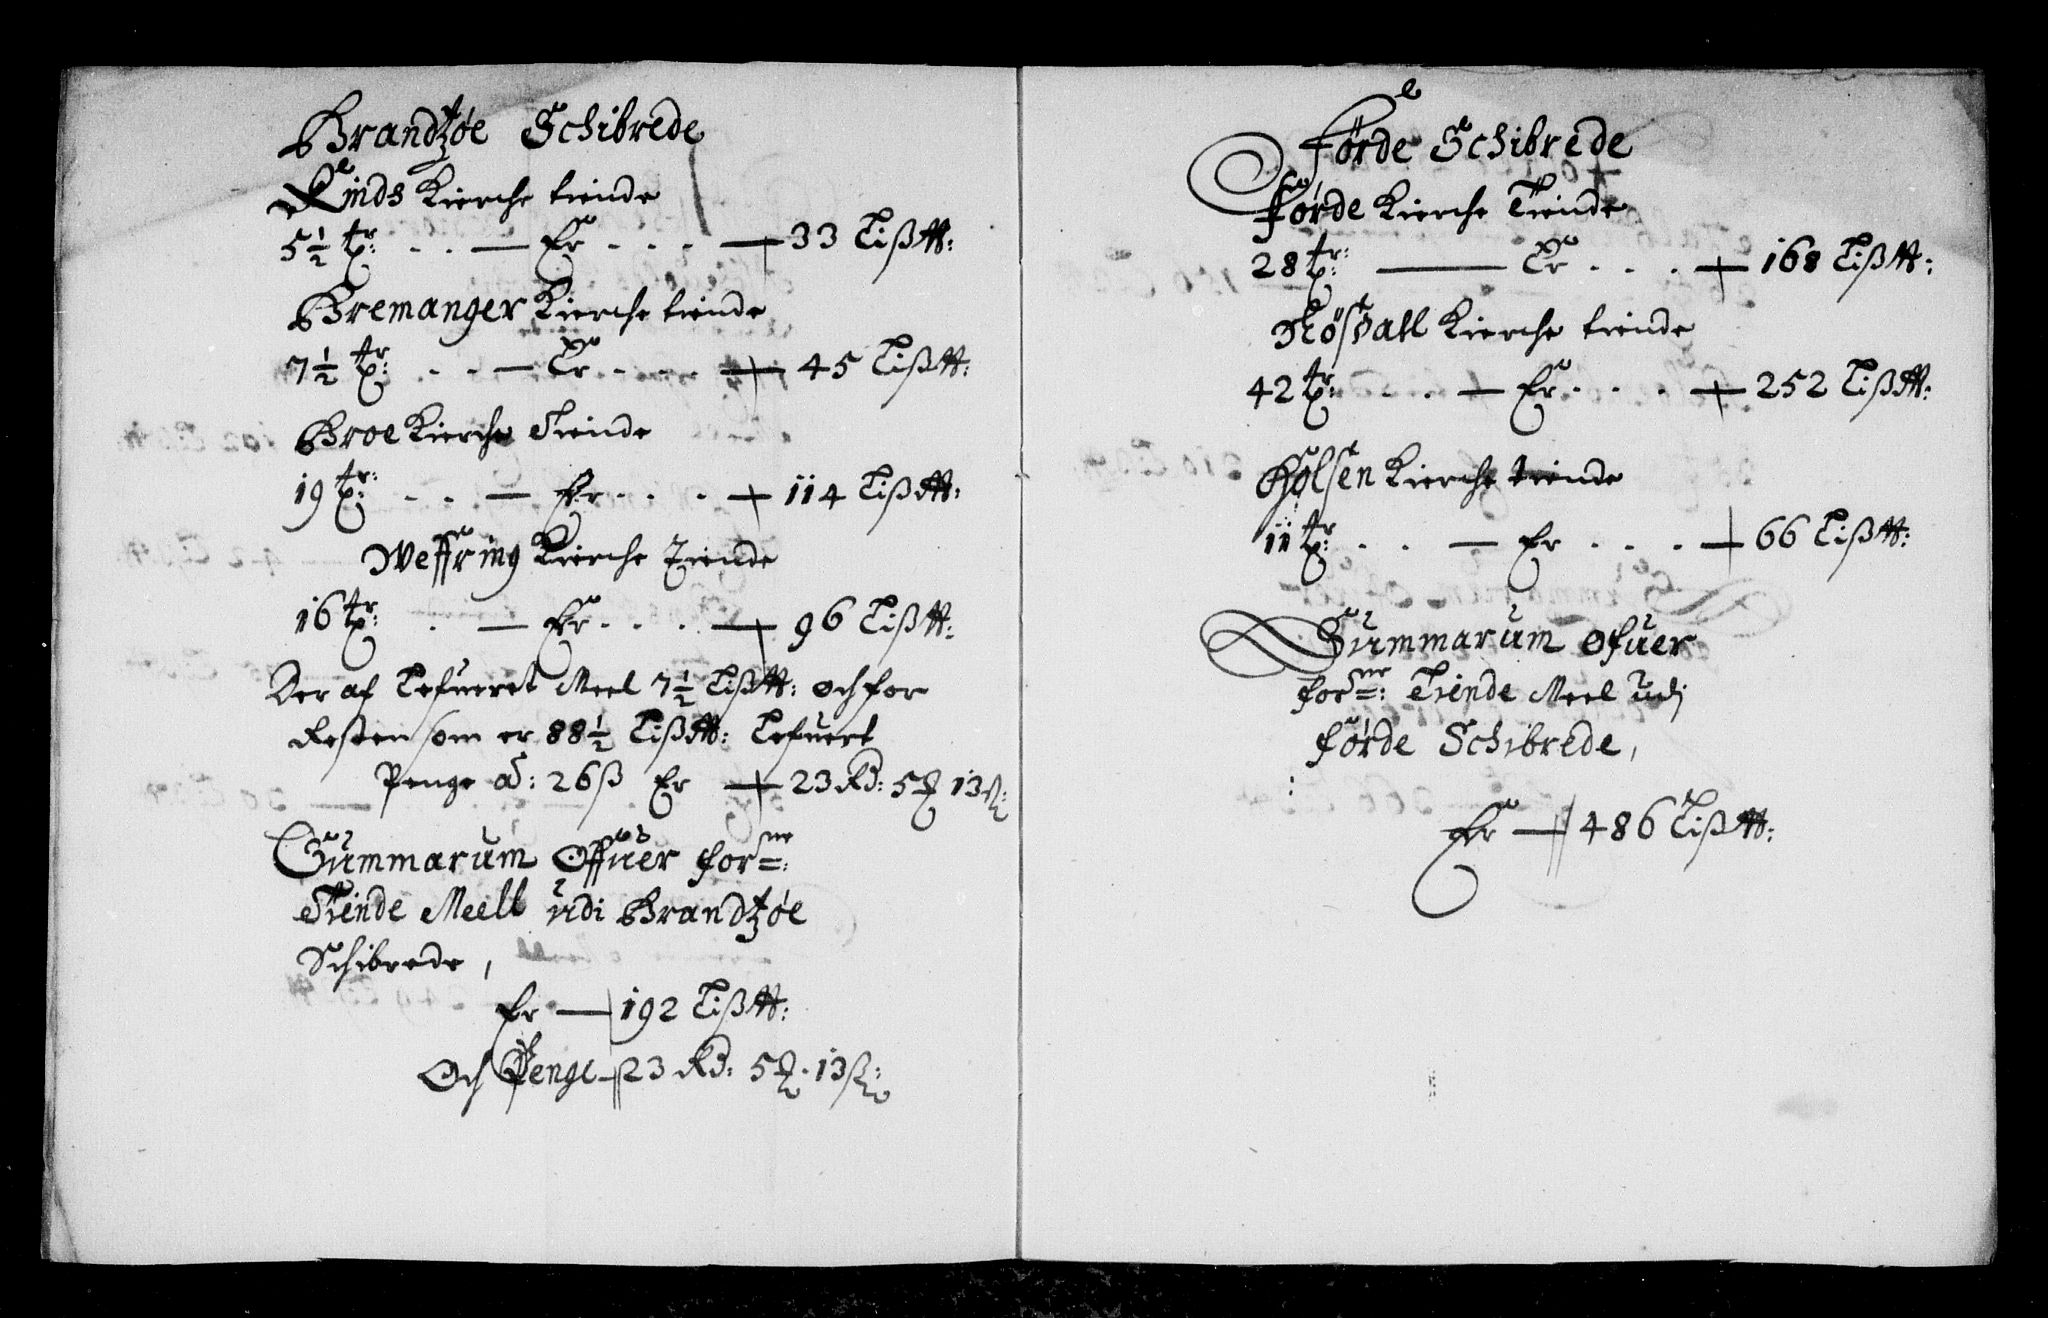 Brandtzøe Schibrede
Kinds Kierche tiende
5½ tr: . . — Er . . . — 33 Lißtt:
Bremanger Kierche tiende
7½ tr: . . — Er . . . — 45 Lißtt:
Broe Kierche Tiende
19 tr: . . — Er . . . — 114 Lißtt:
Weffring Kierche Tiende
16 tr: . — Er . . . — 96 Lißtt:
Der af Lefueret Meel 7½ Lißtt: och for
Resten som er 88½ Lißtt: Lefuert
Penge a: 26 ß Er — 23 Rd: 5 13 ß:
Summarum Offuer forne:
Tiende Meell udi Brandtzøe
Schibrede,
Er — 192 Lißtt:
Och Penge — 23 Rd: 5 . 13 ß:
Förde Schibrede
Förde Kierche Tiende
28 tr: — Er . . . — 168 Lißtt:
Kierche tiende
42 tr: . . — Er . . . — 252 Lißtt:
Holsen Kierche tiende
11 tr: . . — Er . . . — 66 Lißtt:
Summarum Ofuer
forne: Tiende Meel udj
förde Schibrede,
Er — 486 Lißtt: